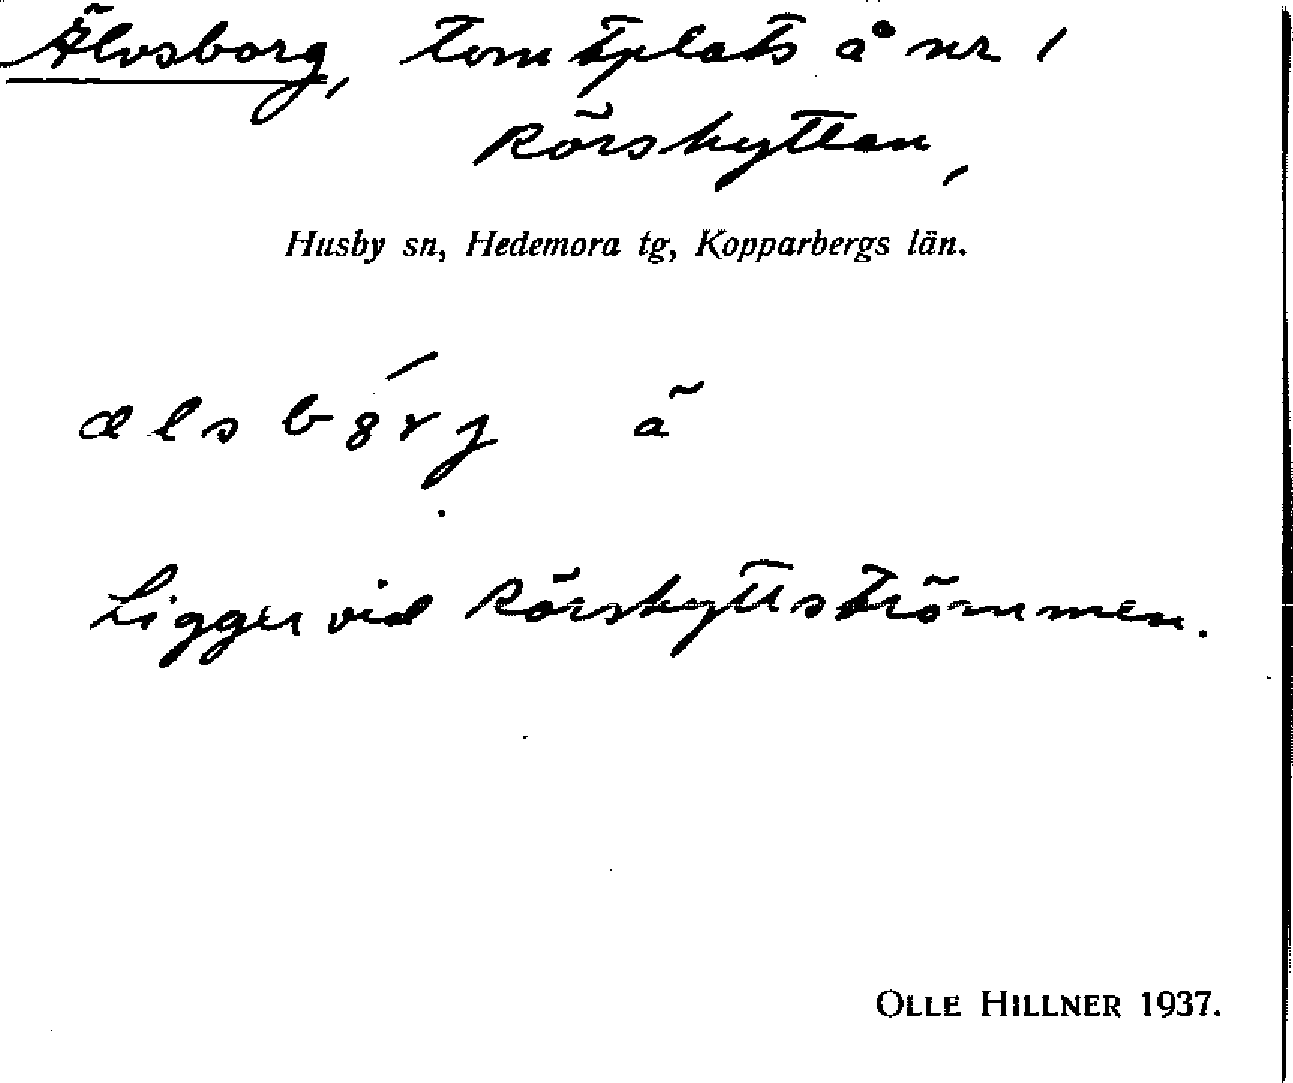 Älvsborg, tomtplats å nr 1
Rörshyttan,
Husby sn, Hedemora tg, Kopparbergs län.
ælsbȯrj ä
Ligger vid Rörshyttströmmen.
OLLE HILLNER 1937.